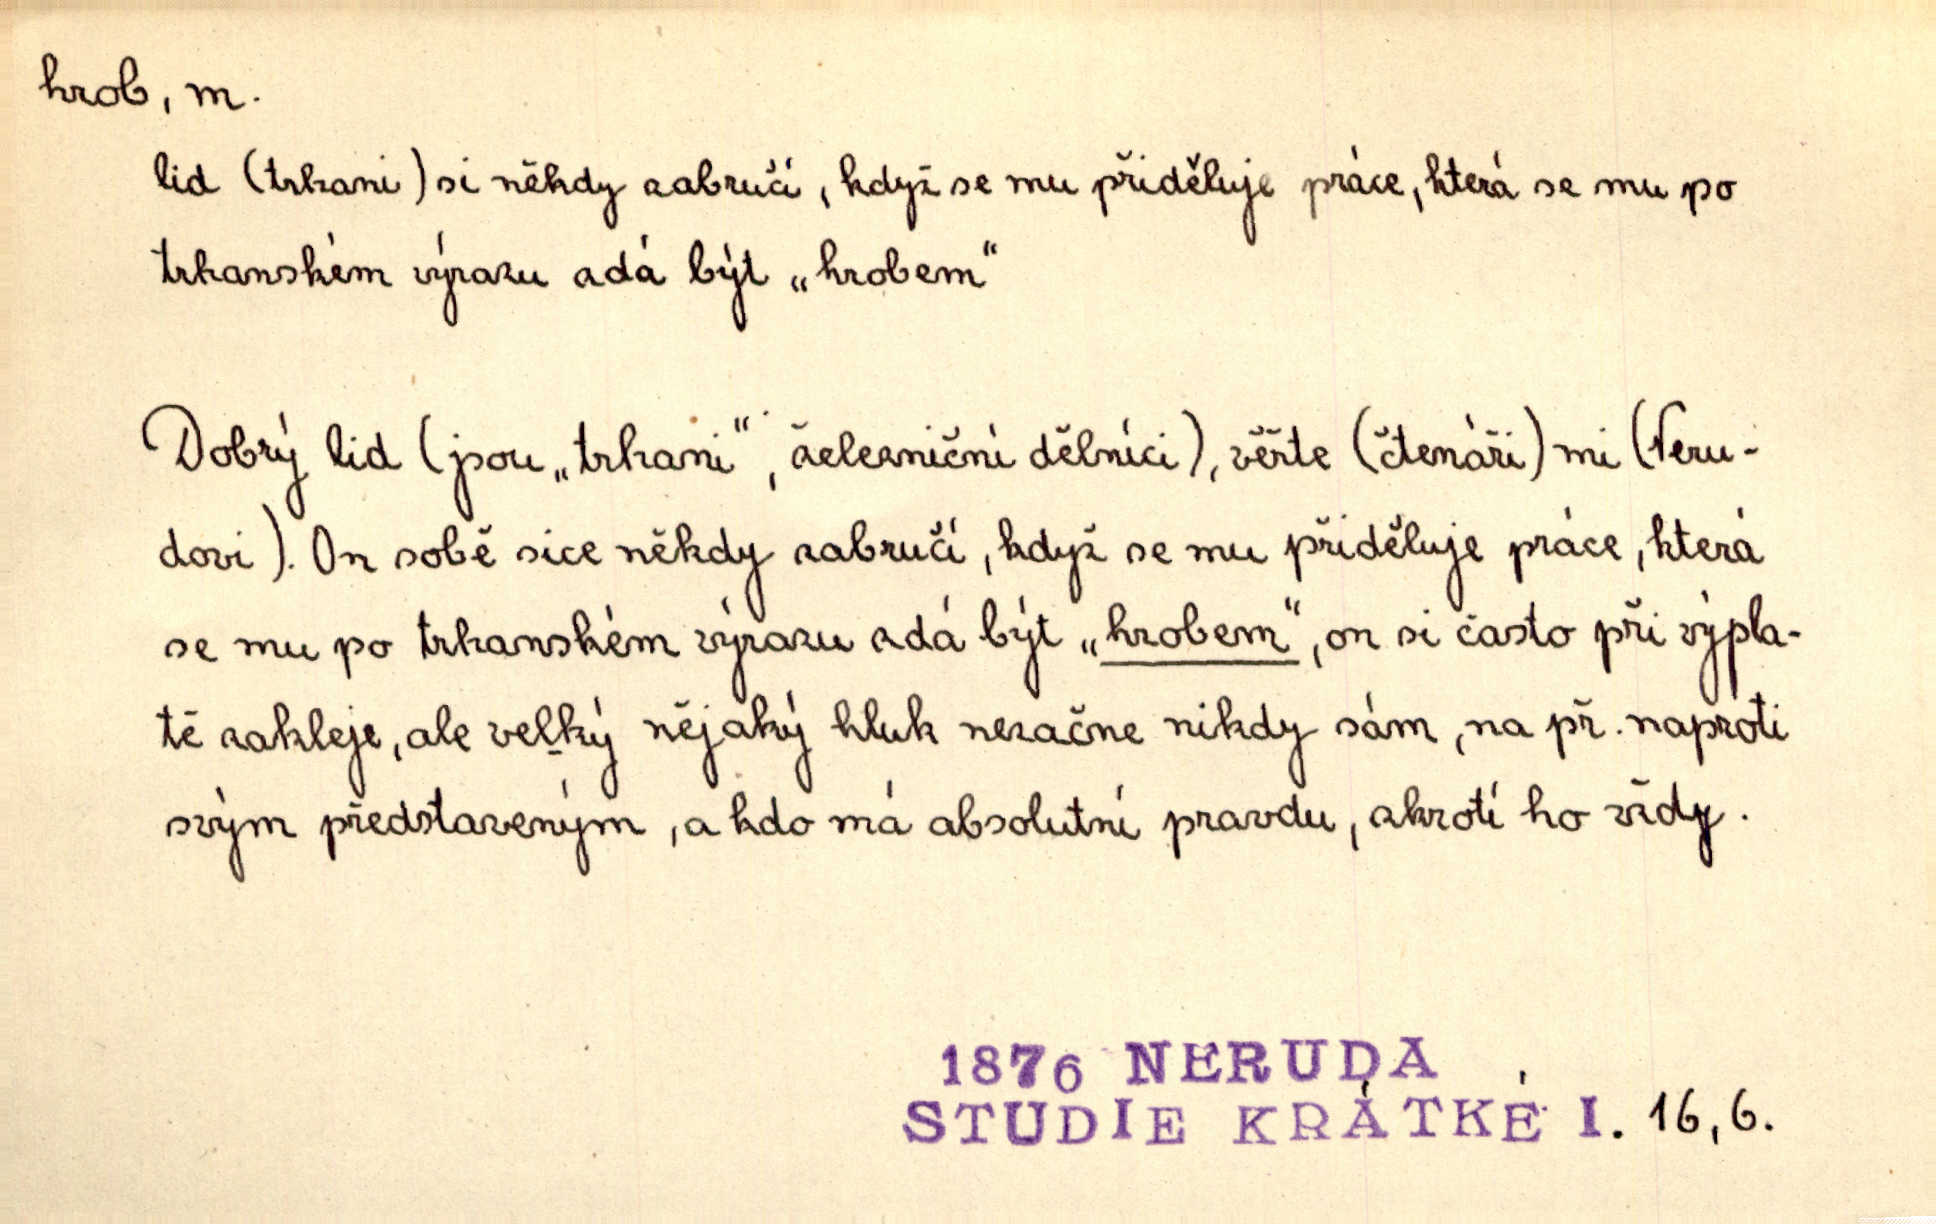 hrob, m.
lid (trhani) si někdy zabručí, když se mu přiděluje práce, která se mu po
trhanském výrazu zdá být „hrobem“
Dobrý lid (jsou „trhani“, železniční dělníci), věřte (čtenáři) mi (Neru-
dovi). On sobě sice někdy zabručí, když se mu přiděluje práce, která
se mu po trhanském výrazu zdá být „hrobem“, on si často při výpla-
tě zakleje, ale velký nějaký hluk nezačne nikdy sám, na př. naproti
svým představeným, a kdo má absolutní pravdu, zkrotí ho vždy.
1876 NERUDA
STUDIE KRÁTKÉ I. 16,6.